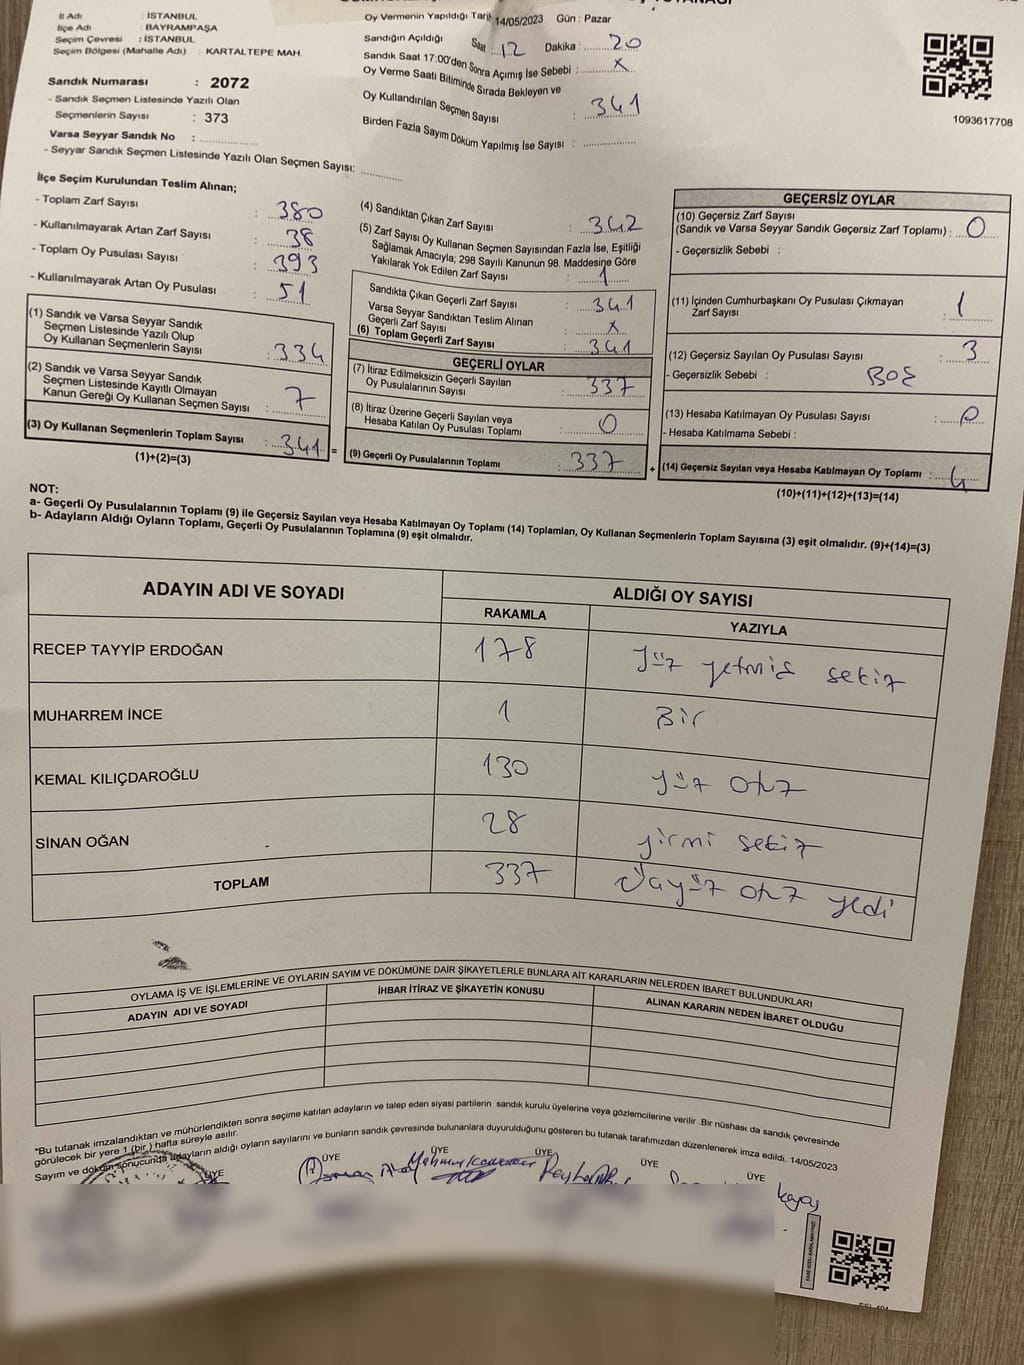 İl Adı : İSTANBUL
İlçe Adı : BAYRAMPAŞA
Seçim Çevresi : İSTANBUL
Seçim Bölgesi (Mahalle Adı) : KARTALTEPE MAH.
Sandık Numarası : 2072
- Sandık Seçmen Listesinde Yazılı Olan
Seçmenlerin Sayısı : 373
Varsa Seyyar Sandık No :
- Seyyar Sandık Seçmen Listesinde Yazılı Olan Seçmen Sayısı:
Oy Vermenin Yapıldığı Tarih 14/05/2023 Gün : Pazar
Sandığın Açıldığı Saat : 17 Dakika : 20
Sandık Saat 17:00'den Sonra Açımış İse Sebebi : X
Oy Verme Saati Bitiminde Sırada Bekleyen ve
Oy Kullandırılan Seçmen Sayısı : 341
Birden Fazla Sayım Döküm Yapılmış İse Sayısı :
1093617708
İlçe Seçim Kurulundan Teslim Alınan;
- Toplam Zarf Sayısı : 380
- Kullanılmayarak Artan Zarf Sayısı : 38
- Toplam Oy Pusulası Sayısı : 393
- Kullanılmayarak Artan Oy Pusulası : 51
(1) Sandık ve Varsa Seyyar Sandık
Seçmen Listesinde Yazılı Olup
Oy Kullanan Seçmenlerin Sayısı : 334
(2) Sandık ve Varsa Seyyar Sandık
Seçmen Listesinde Kayıtlı Olmayan
Kanun Gereği Oy Kullanan Seçmen Sayısı : 7
(3) Oy Kullanan Seçmenlerin Toplam Sayısı : 341 =
(1)+(2)=(3)
(4) Sandıktan Çıkan Zarf Sayısı : 342
(5) Zarf Sayısı Oy Kullanan Seçmen Sayısından Fazla İse, Eşitliği
Sağlamak Amacıyla; 298 Sayılı Kanunun 98. Maddesine Göre
Yakılarak Yok Edilen Zarf Sayısı : 1
Sandıkta Çıkan Geçerli Zarf Sayısı : 341
Varsa Seyyar Sandıktan Teslim Alınan
Geçerli Zarf Sayısı : X
(6) Toplam Geçerli Zarf Sayısı : 341
GEÇERLİ OYLAR
(7) İtiraz Edilmeksizin Geçerli Sayılan
Oy Pusulalarının Sayısı : 337
(8) İtiraz Üzerine Geçerli Sayılan veya
Hesaba Katılan Oy Pusulası Toplamı : 0
(9) Geçerli Oy Pusulalarının Toplamı : 337 +
GEÇERSİZ OYLAR
(10) Geçersiz Zarf Sayısı
(Sandık ve Varsa Seyyar Sandık Geçersiz Zarf Toplamı) : 0
- Geçersizlik Sebebi :
(11) İçinden Cumhurbaşkanı Oy Pusulası Çıkmayan
Zarf Sayısı : 1
(12) Geçersiz Sayılan Oy Pusulası Sayısı : 3
- Geçersizlik Sebebi : BOŞ
(13) Hesaba Katılmayan Oy Pusulası Sayısı : 0
- Hesaba Katılmama Sebebi :
(14) Geçersiz Sayılan veya Hesaba Katılmayan Oy Toplamı : 4
(10)+(11)+(12)+(13)=(14)
NOT:
a- Geçerli Oy Pusulalarının Toplamı (9) ile Geçersiz Sayılan veya Hesaba Katılmayan Oy Toplamı (14) Toplamları, Oy Kullanan Seçmenlerin Toplam Sayısına (3) eşit olmalıdır. (9)+(14)=(3)
b- Adayların Aldığı Oyların Toplamı, Geçerli Oy Pusulalarının Toplamına (9) eşit olmalıdır.
ADAYIN ADI VE SOYADI ALDIĞI OY SAYISI
RAKAMLA YAZIYLA
RECEP TAYYİP ERDOĞAN 178 yüz yetmiş sekiz
MUHARREM İNCE 1 Bir
KEMAL KILIÇDAROĞLU 130 yüz otuz
SİNAN OĞAN 28 yirmi sekiz
TOPLAM 337 üçyüz otuz yedi
OYLAMA İŞ VE İŞLEMLERİNE VE OYLARIN SAYIM VE DÖKÜMÜNE DAİR ŞİKAYETLERLE BUNLARA AİT KARARLARIN NELERDEN İBARET BULUNDUKLARI
ADAYIN ADI VE SOYADI İHBAR İTİRAZ VE ŞİKAYETİN KONUSU ALINAN KARARIN NEDEN İBARET OLDUĞU
*Bu tutanak imzalandıktan ve mühürlendikten sonra seçime katılan adayların ve talep eden siyasi partilerin sandık kurulu üyelerine veya gözlemcilerine verilir. Bir nüshası da sandık çevresinde
görülecek bir yere 1 (bir ) hafta süreyle asılır.
Sayım ve döküm sonucunda adayların aldığı oyların sayılarını ve bunların sandık çevresinde bulunanlara duyurulduğunu gösteren bu tutanak tarafımızdan düzenlenerek imza edildi. 14/05/2023
ÜYE ÜYE ÜYE ÜYE ÜYE ÜYE